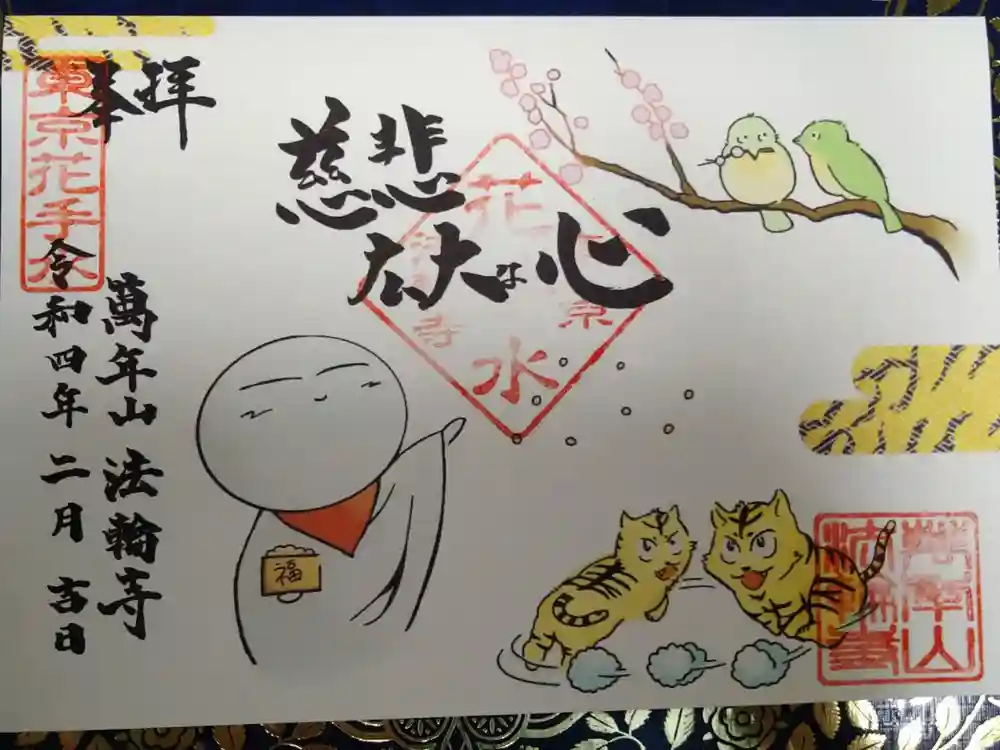 奉拝
慈悲
広大な心
東京花手水
花
東京
法輪寺
水
萬年山 法輪寺
令和四年 二月 吉日
福
萬年山
法輪寺